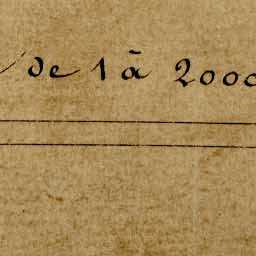 de 1 à 2000